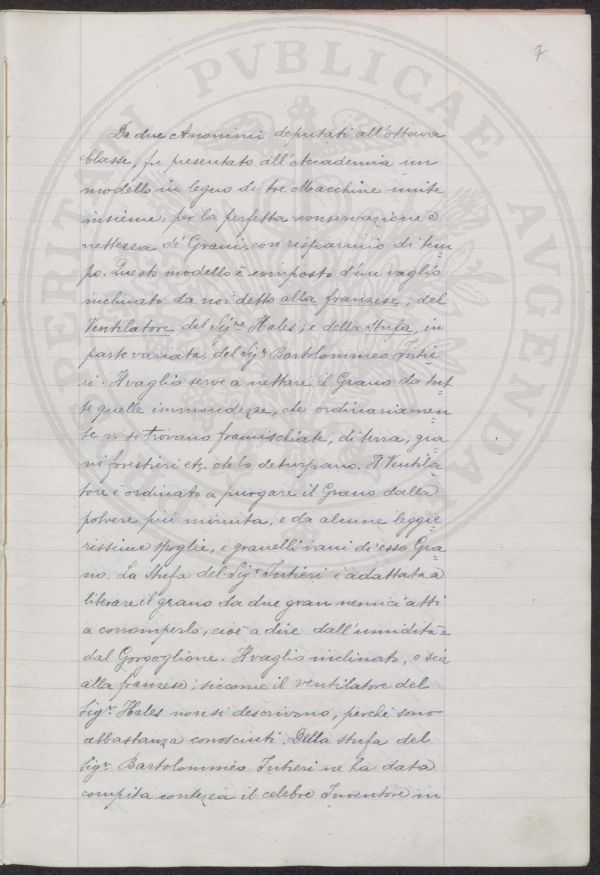 7
Da due Anonimi deputati all'ottava
Classe, fu presentato all'Accademia un
modello in legno di tre Macchine unite
insieme, per la perfetta conservazione e
nettezza de' Grani, con risparmio di tem=
po. Questo modello è composto d'un vaglio
inclinato da noi detto alla franzese; del
Ventilatore del Sig.re Hales; e della stufa, in
parte variata, del Sig.r Bartolommeo Intie=
ri. Il vaglio serve a nettare il Grano da tut=
te quelle immondezze, che ordinariamen=
te vi si trovano framischiate, di terra, gra=
ni forestieri etc. che lo deturpano. Il Ventila=
tore è ordinato a purgare il Grano dalla
polvere più minuta, e da alcune leggie=
rissime spoglie, e granelli vani di esso Gra=
no. La stufa del Sig.r Intieri è adattata a
liberare il grano da due gran nemici atti
a corromperlo, cioè a dire dall'umidità e
dal Gorgoglione. Il vaglio inclinato, o sia
alla franzese; siccome il ventilatore del
Sig.r Hales non si descrivono, perchè sono
abbastanza conosciuti. Della stufa del
Sig.r Bartolommeo Intieri ne ha data
compita contezza il celebre Inventore in
PERITATI PVBLICAE AVGENDAE